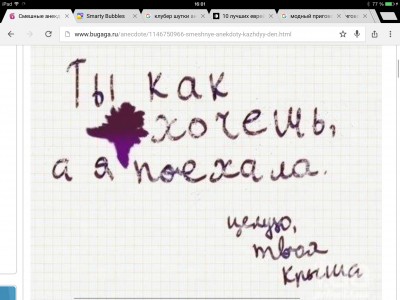 iPad
16:01
77 %
Смешные анек
Smarty Bubbles
клубер шутки
10 лучших
модный пригов
www.bugaga.ru/anecdote/1146750966-smeshnye-anekdoty-kazhdyy-den.html
Ты как
хочешь,
а я поехала.
целую,
твоя
крыша